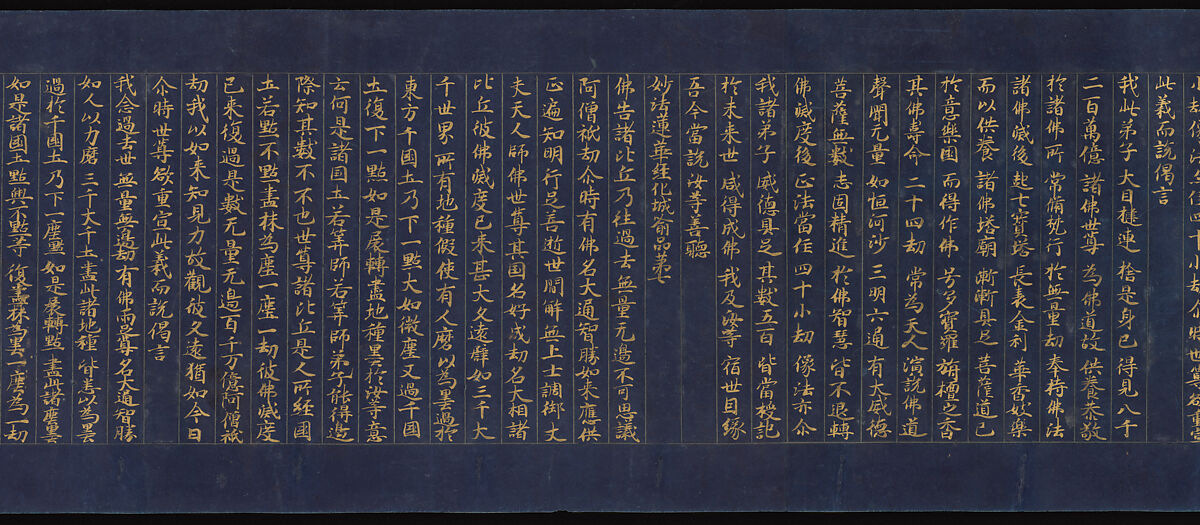 此義而說偈言
我此弟子大目揵連 捨是身已得見八千
二百萬億 諸佛世尊 為佛道故 供養恭敬
於諸佛所 常脩梵行 於無量劫 奉持佛法
諸佛滅後 起七寶塔 長表金刹 華香妓樂
而以供養 諸佛塔廟 漸漸具足 菩薩道已
於意樂国 而得作佛 号多摩羅 栴檀之香
其佛壽命 二十四劫 常為天人 演說佛道
聲聞无量 如恒河沙 三明六通 有大威德
菩薩無數 志固精進 於佛智慧 皆不退轉
佛滅度後 正法當住 四十小劫 像法亦尒
我諸弟子 威德具足 其數五百 皆當授記
於未来世 咸得成佛 我及汝等 宿世因緣
吾今當說 汝等善聽
妙法蓮華經化城喻品第七
佛告諸比丘乃往過去無量无邊不可思議
阿僧祇劫尒時有佛名大通智勝如来應供
正遍知明行足善逝世間解無上士調御丈
夫天人師佛世尊其国名好成劫名大相諸
比丘彼佛滅度已来甚大久遠譬如三千大
千世界所有地種假使有人磨以為墨過於
東方千國土乃下一點大如微塵又過千国
土復下一點如是展轉盡地種墨於汝等意
云何是諸国土若筭師若筭師弟子能得邊
際知其數不不也世尊諸比丘是人所經國
土若點不點盡抹為塵一塵一劫彼佛滅度
已来復過是數无量无邊百千万億阿僧祇
劫我以如来知見力故觀彼久遠猶如今日
尒時世尊欲重宣此義而說偈言
我念過去世 無量無邊劫 有佛兩足尊 名大通智勝
如人以力磨 三千大千土 盡此諸地種 皆悉以為墨
過於千國土 乃下一塵點 如是展轉點 盡此諸塵墨
如是諸国土 點與不點等 復盡抹為塵 一塵為一劫